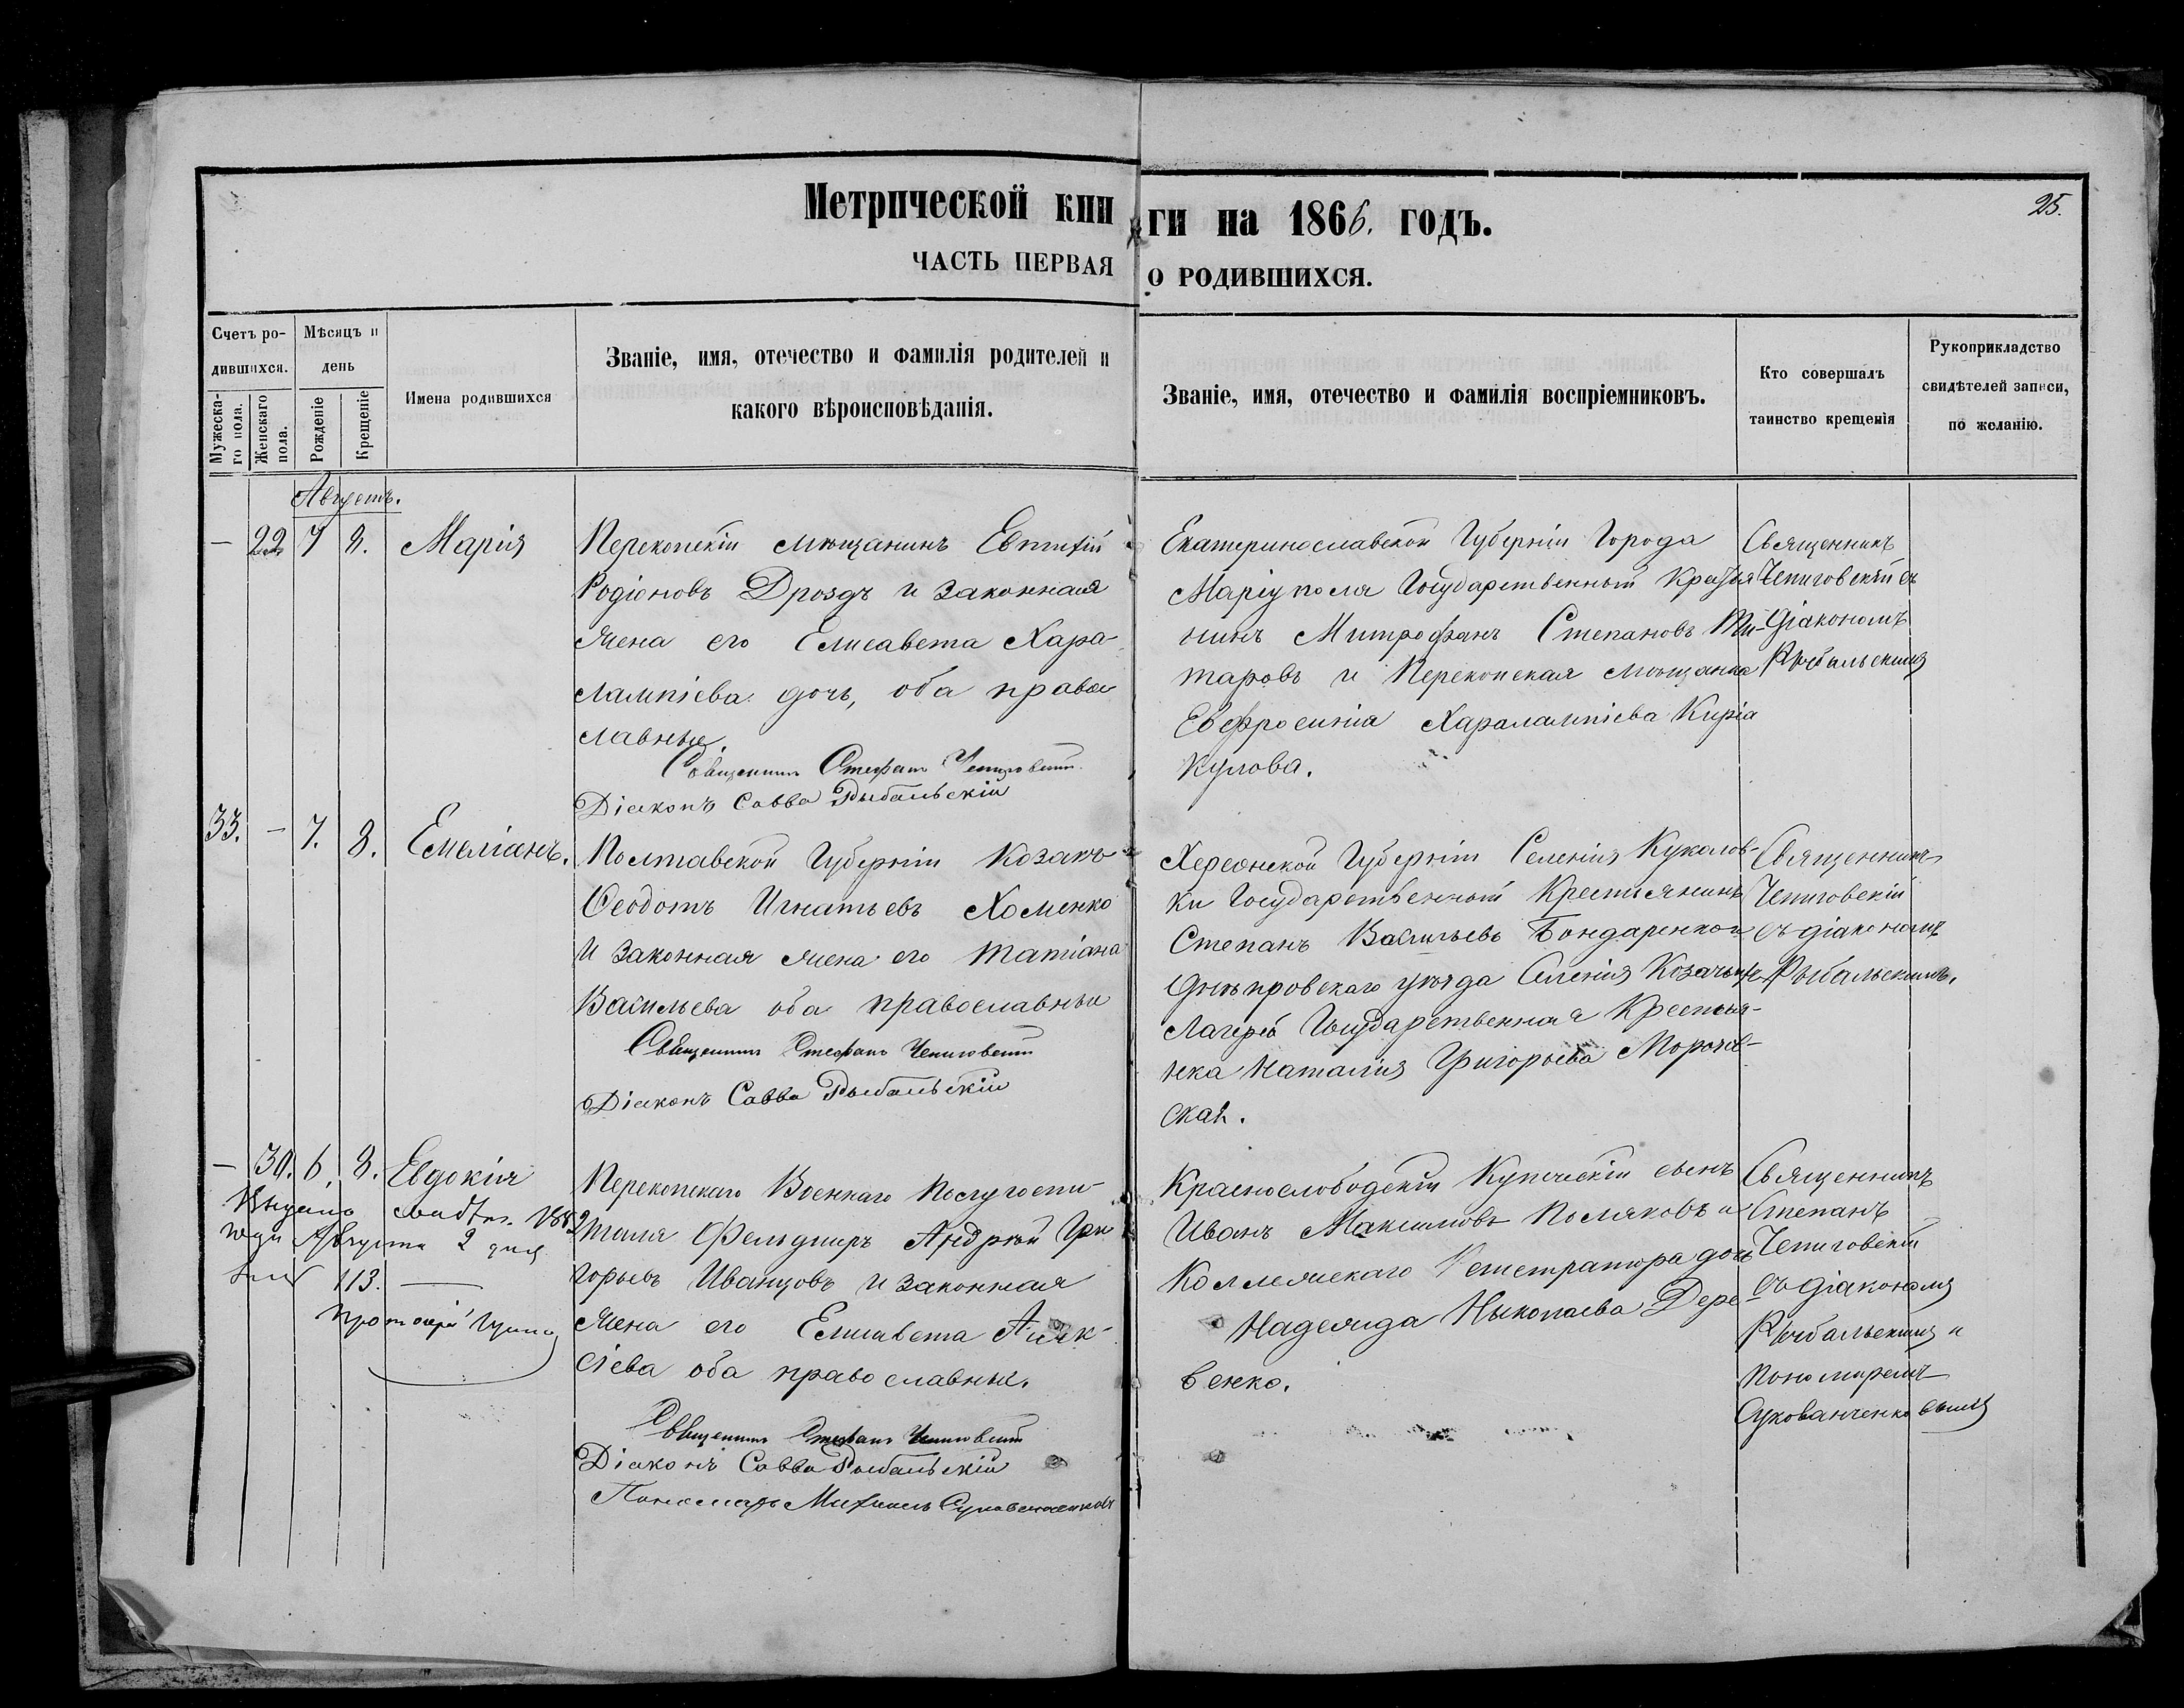 Метрической кни
ги на 1866. годъ.
25.
ЧАСТЬ ПЕРВАЯ
О РОДИВШИХСЯ.
Счетъ ро-
дившихся.
Мужеска-
го пола.
Женскаго
пола.
Мѣсяцъ и
день
Рожденіе
Крещеніе
Имена родившихся
Званіе, имя, отечество и фамилія родителей и
какого вѣроисповѣданія.
Званіе, имя, отечество и фамилія воспріемниковъ.
Кто совершалъ
таинство крещенія
Рукоприкладство
свидѣтелей записи,
по желанію.
Августъ.
— 22 7 8. Марія
Перекопскій мѣщанинъ Евтихій
Родіоновъ Дроздъ и законная
жена его Елисавета Хара-
лампіева дочь, оба право
славные.
Священникъ Стефанъ Чепиговскій
Діаконъ Савва Рыбальскій
Екатеринославской Губерніи Города
Маріуполя Государственный Крестья
нинъ Митрофанъ Степановъ Ти-
таровъ и Перекопская мѣщанка
Евфросинія Харалампіева Киріа
кулова.
Священникъ
Чепиговскій съ
діакономъ
Рыбальскимъ
33. — 7. 8. Емеліанъ.
Полтавской Губерніи Козакъ
Ѳеодотъ Игнатьевъ Хоменко
и законная жена его Татіана
Васильева оба православные
Священникъ Стефанъ Чепиговскій
Діаконъ Савва Рыбальскій
Херсонской Губерніи Селенія Куколов-
ки Государственный Крестьянинъ
Степанъ Васильевъ Бондаренко и
Днѣпровскаго уѣзда Селенія Козачьихъ
Лагерей Государственная Крестья-
нка Наталія Григорьева Морозов-
ская.
Священникъ
Чепиговскій
съ діакономъ
Рыбальскимъ.
— 30. 6. 8. Евдокія
Выдано свидѣт. 1882
года Августа 2 дня
за № 113.
Протоіерей
Перекопскаго Военнаго Полугоспи-
таля Фельдшеръ Андрей Гри
горьевъ Иванцовъ и законная
жена его Елисавета Алек-
сіева оба православные.
Священникъ Стефанъ Чепиговскій
Діаконъ Савва Рыбальскій
Пономарь Михаилъ Сукованченковъ
Краснослободскій Купеческій сынъ
Иванъ Максимовъ Поляковъ и
Коллежскаго Регистратора дочь
Надежда Николаева Дере
венко.
Священникъ
Степанъ
Чепиговскій
съ діакономъ
Рыбальскимъ и
пономаремъ
Сукованченковымъ